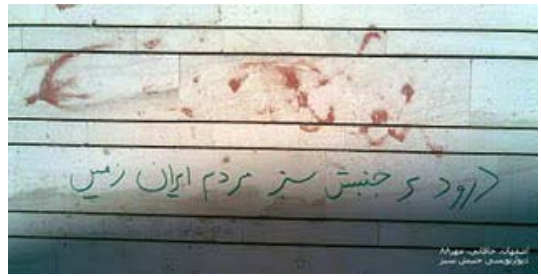 درود بر جنبش سبز مردم ایران زمین
اصفهان، خاقانی، مهر ۸۸
دیوارنویسی جنبش سبز